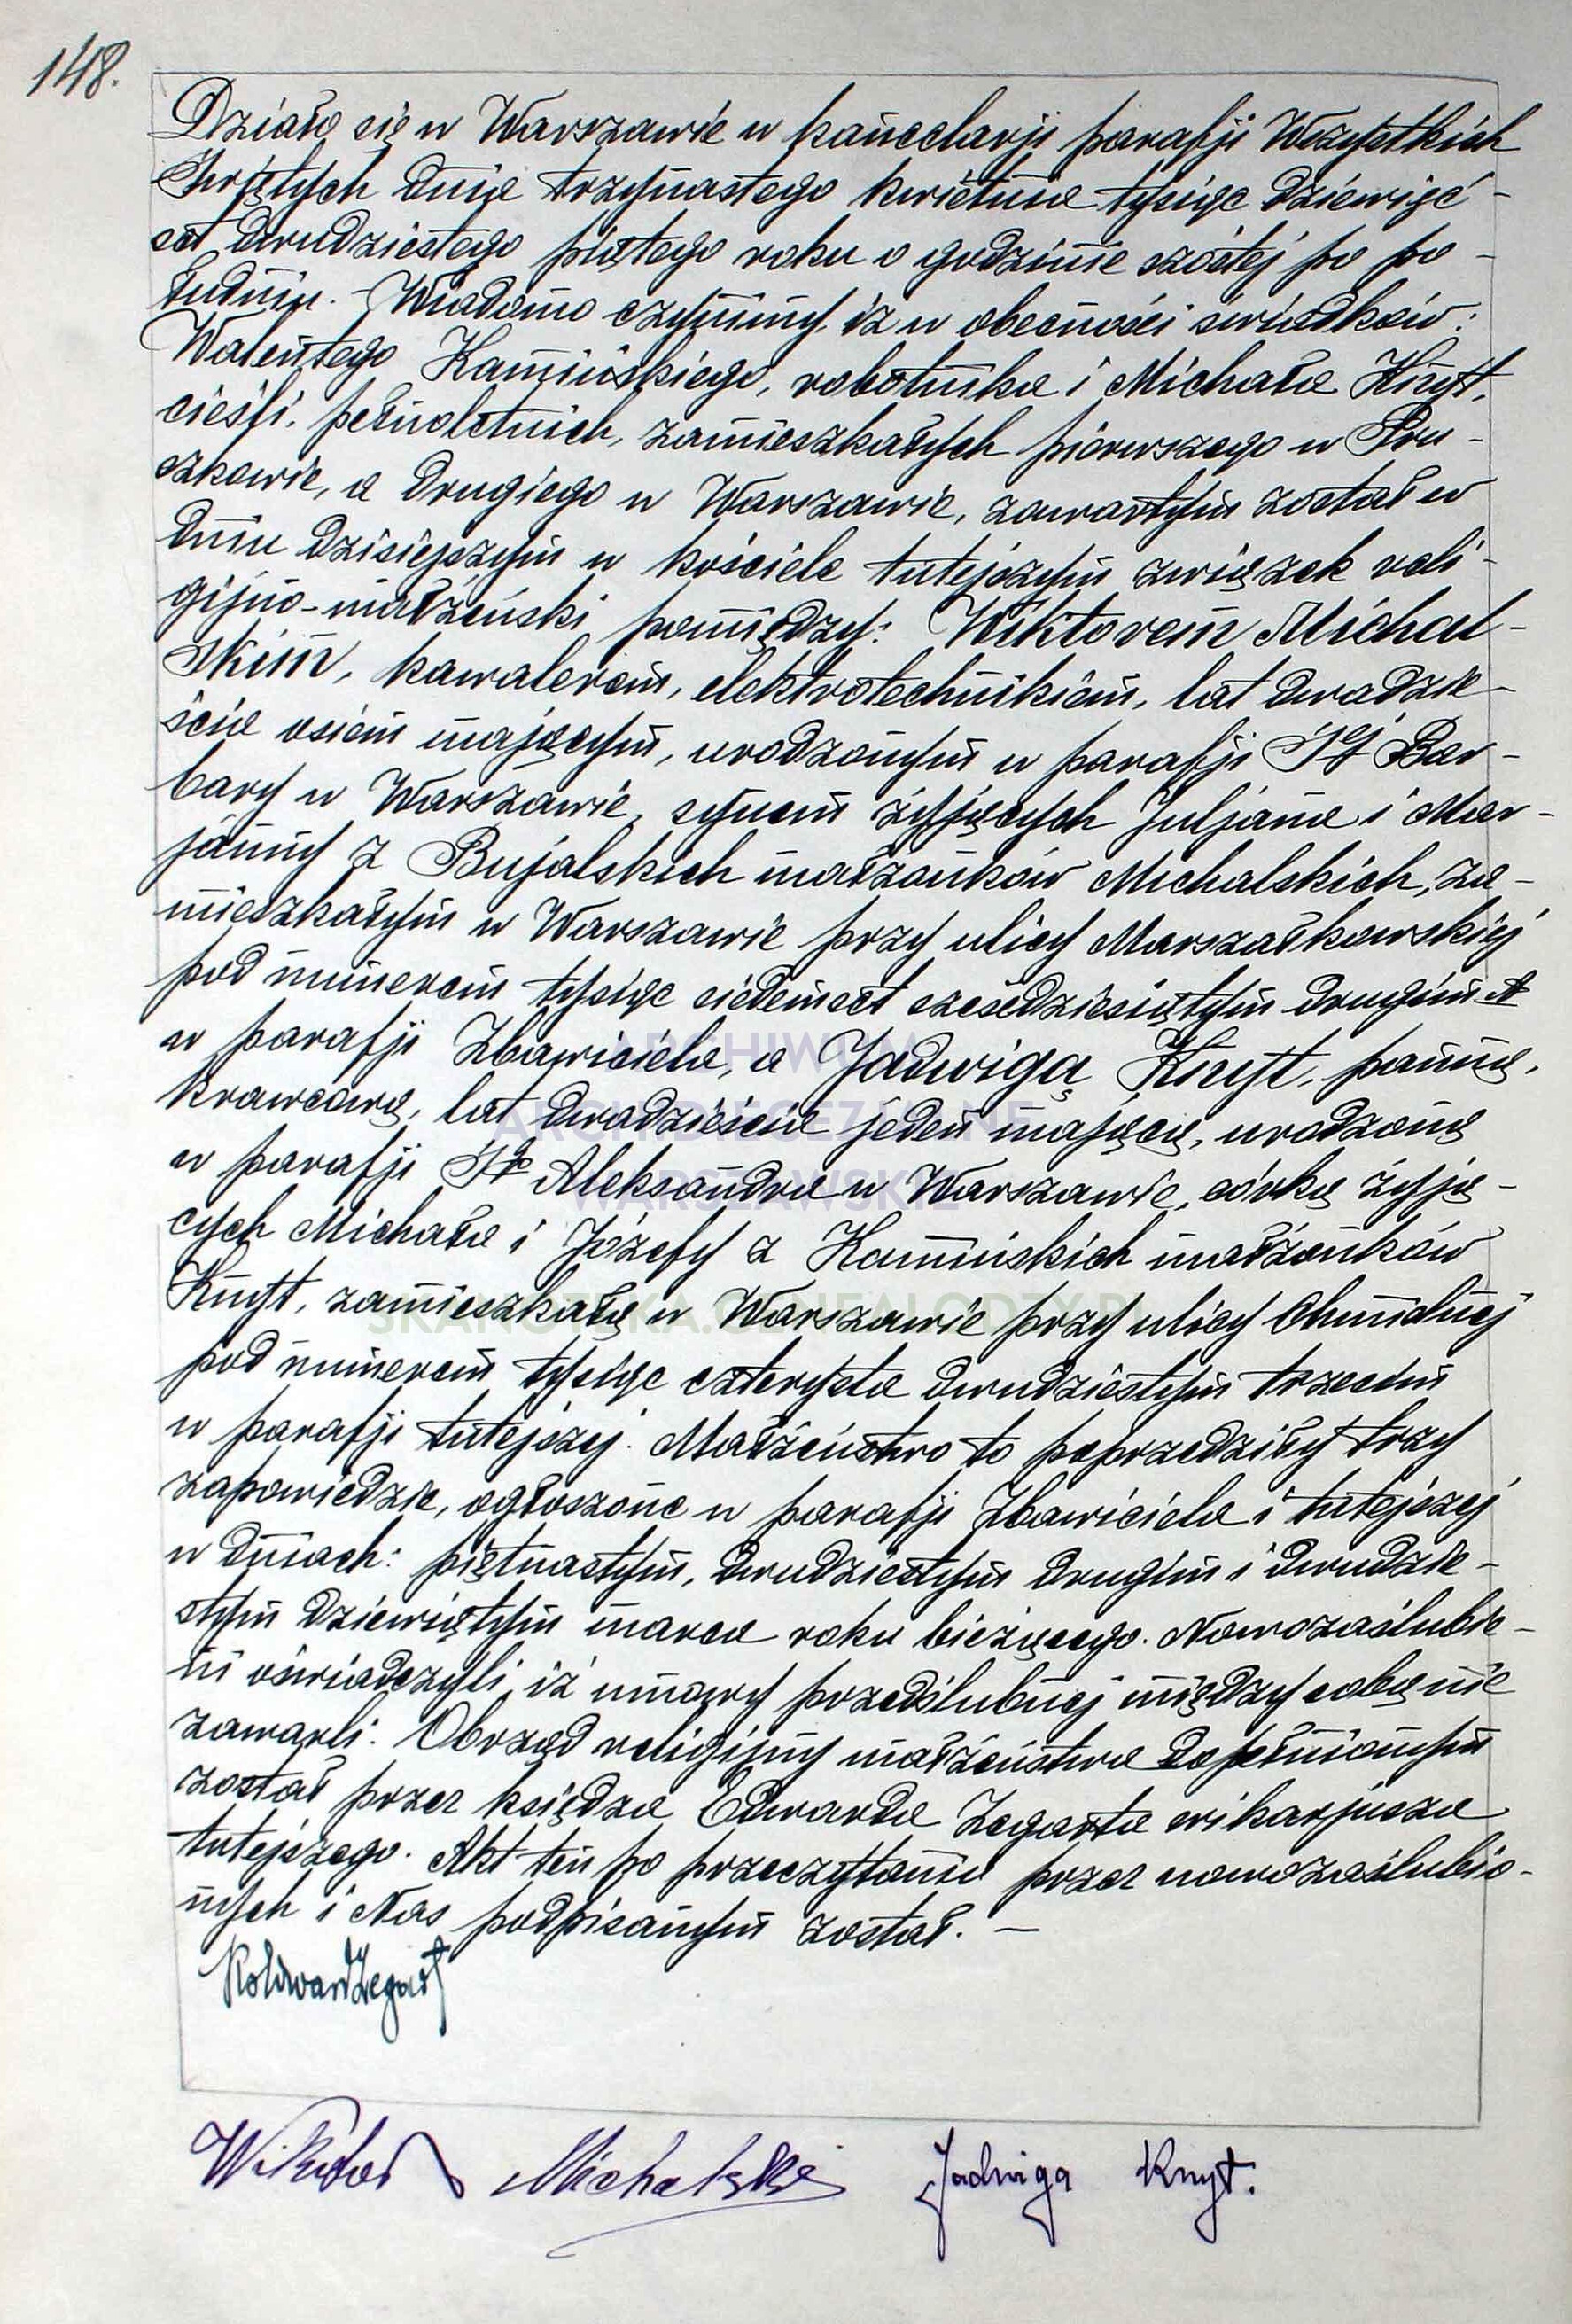 148.
Działo się w Warszawie w kancelarji parafji Wszystkich
Świętych dnia trzynastego kwietnia tysiąc dziewięć-
set dwudziestego piątego roku o godzinie szóstej po po-
łudniu. - Wiadomo czynimy, iż w obecności świadków:
Walentego Kamińskiego, robotnika i Michała Knyt,
cieśli, pełnoletnich, zamieszkałych pierwszego w Pru-
szkowie, a drugiego w Warszawie, zawartym został w
dniu dzisiejszym w kościele tutejszym związek reli-
gijno-małżeński pomiędzy: Wiktorem Michal-
skim, kawalerem, elektrotechnikiem, lat dwadzie-
ścia osiem mającym, urodzonym w parafji Św Bar-
bary w Warszawie, synem żyjących Juljana i Mar-
janny z Bujalskich małżonków Michalskich, za-
mieszkałym w Warszawie przy ulicy Marszałkowskiej
pod numerem tysiąc siedemset sześćdziesiątym drugim A
w parafji Zbawiciela, a Jadwigą Knyt, panną,
krawcową, lat dwadzieścia jeden mającą, urodzoną
w parafji Św Aleksandra w Warszawie, córką żyją-
cych Michała i Józefy z Kamińskich małżonków
Knyt, zamieszkałą w Warszawie przy ulicy Chmielnej
pod numerem tysiąc czterysta dwudziestym trzecim
w parafji tutejszej. Małżeństwo to poprzedziły trzy
zapowiedzie, ogłoszone w parafji Zbawiciela i tutejszej
w dniach: piętnastym, dwudziestym drugim i dwudzie-
stym dziewiątym marca roku bieżącego. Nowozaślubie-
ni oświadczyli, iż umowy przedślubnej między sobą nie
zawarli. Obrząd religijny małżeństwa dopełnionym
został przez księdza Edwarda Zegarta wikarjusza
tutejszego. Akt ten po przeczytaniu przez nowozaślubio-
nych i Nas podpisanym został. —
Ks Edward Zegart
Wiktor Michalski Jadwiga Knyt.
ARCHIWUM
ARCHIDIECEZJALNE
WARSZAWSKIE
SKANOTEKA.GENEALODZY.PL